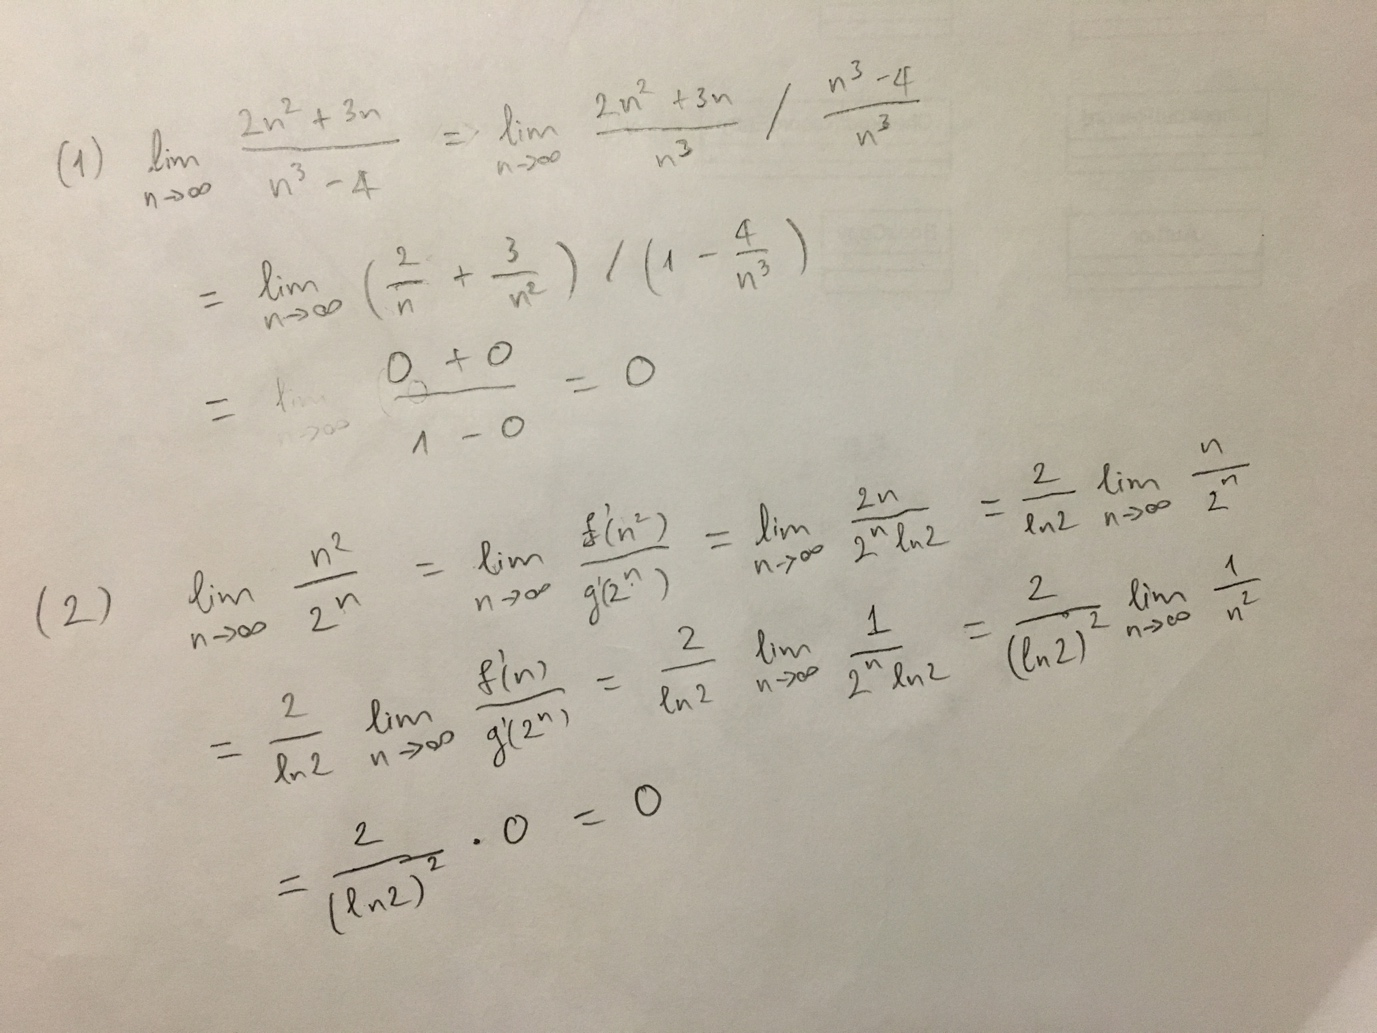 (1) lim n→∞ (2n² + 3n)/(n³ - 4) = lim n→∞ (2n² + 3n)/n³ / (n³ - 4)/n³
= lim n→∞ (2/n + 3/n²) / (1 - 4/n³)
= (0 + 0)/(1 - 0) = 0
(2) lim n→∞ n²/2ⁿ = lim n→∞ f'(n²)/g'(2ⁿ) = lim n→∞ 2n/(2ⁿ ln2) = 2/ln2 lim n→∞ n/2ⁿ
= 2/ln2 lim n→∞ f'(n)/g'(2ⁿ) = 2/ln2 lim n→∞ 1/(2ⁿ ln2) = 2/(ln2)² lim n→∞ 1/n²
= 2/(ln2)² · 0 = 0